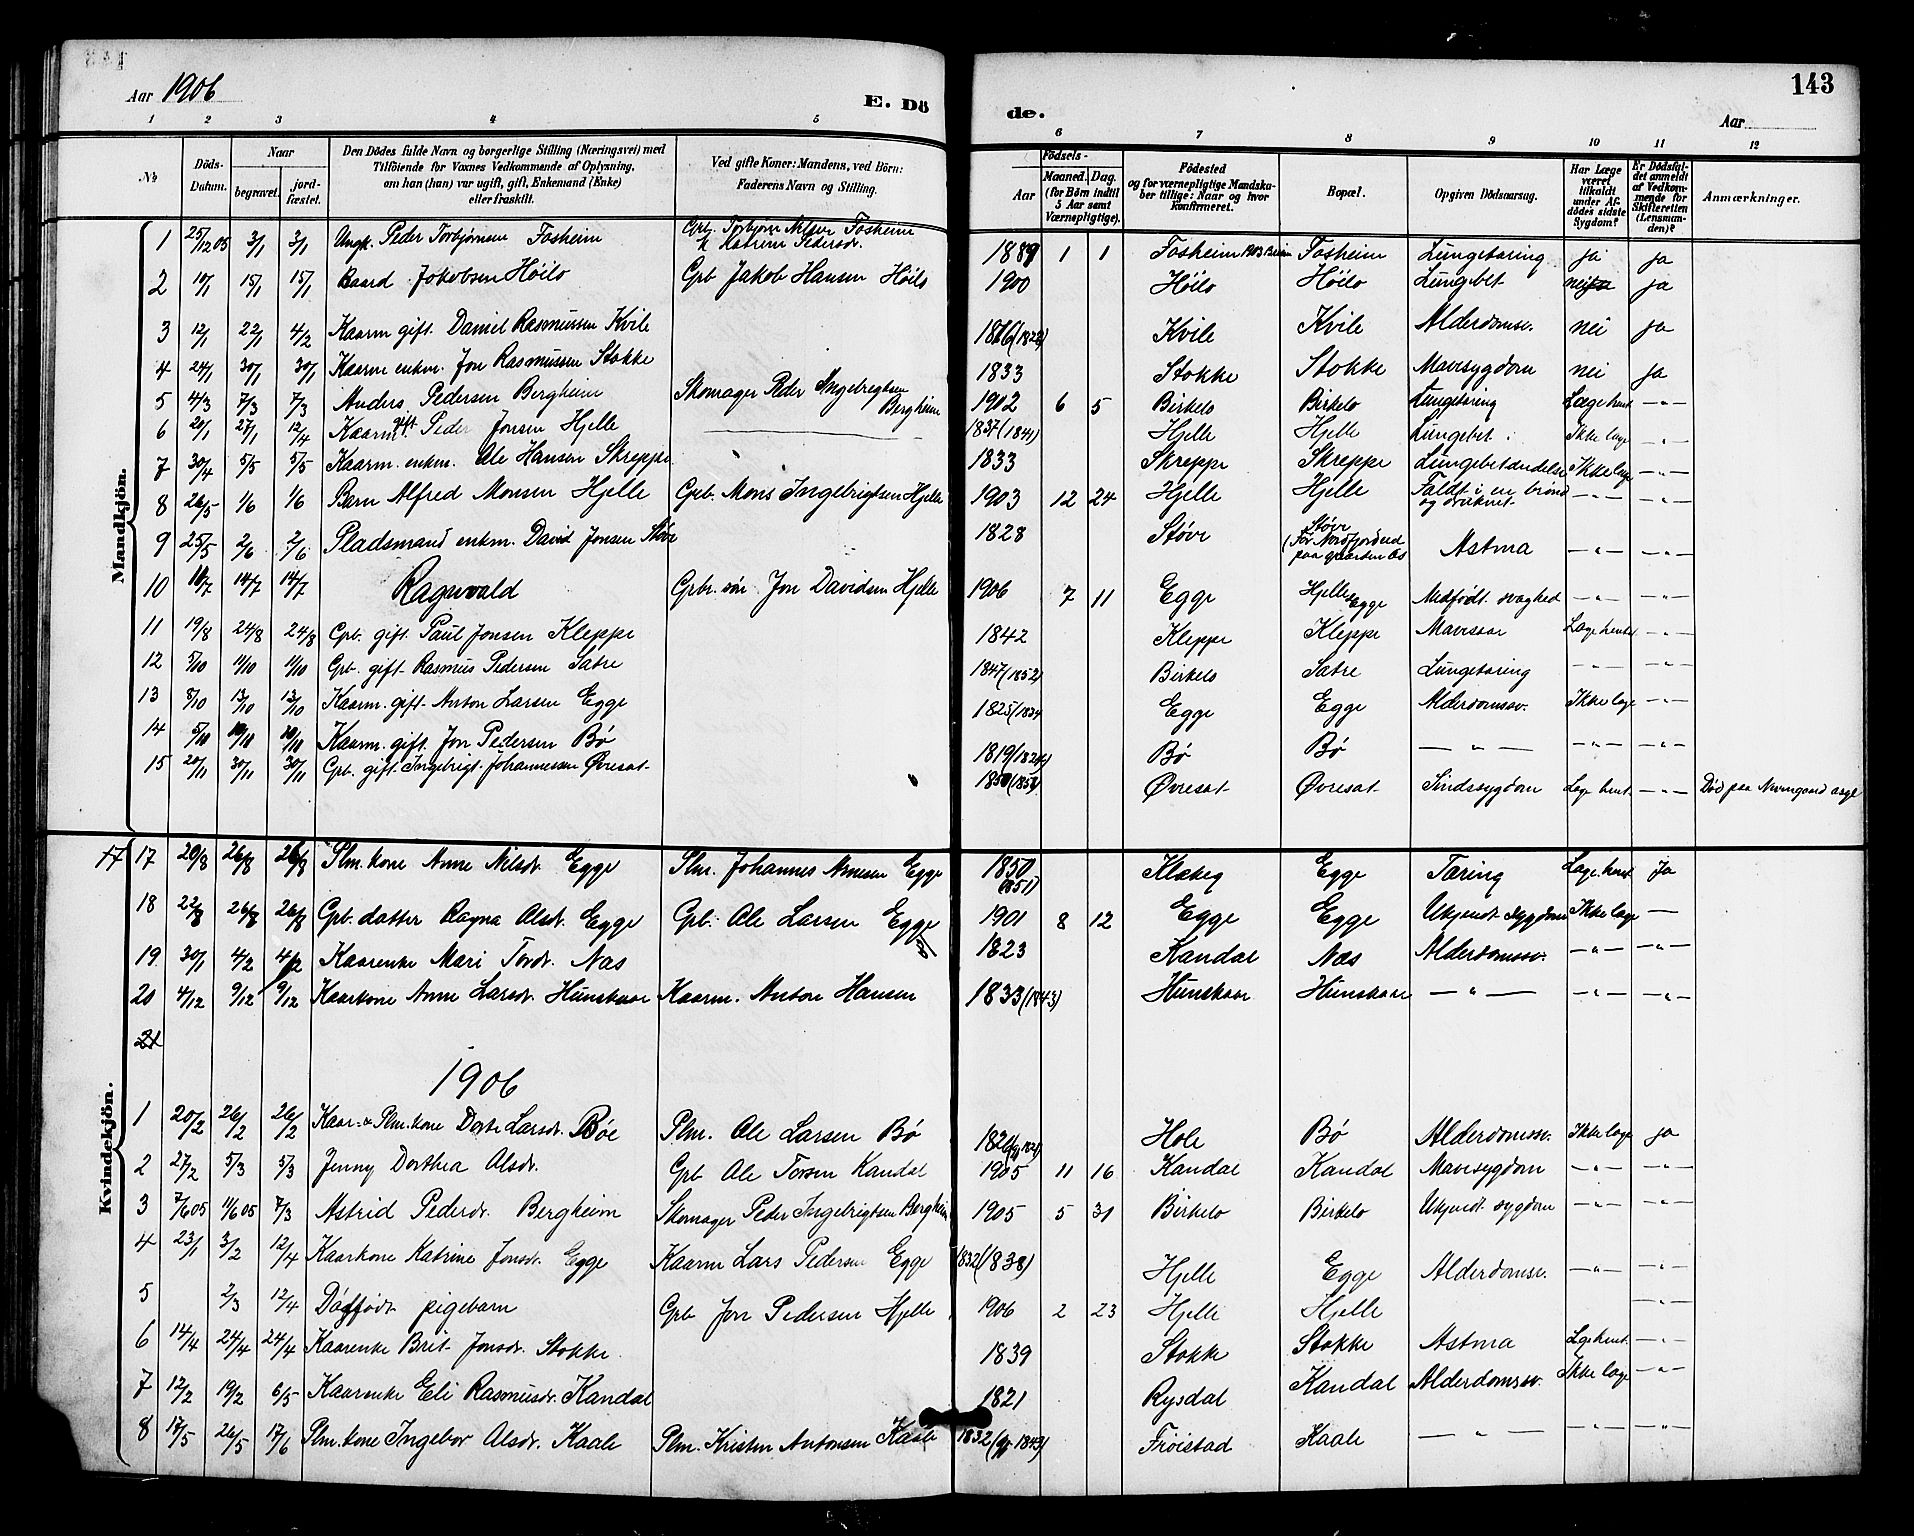 Aar 1906
E. Dö
de.
143
Aar
1 2 3 4 5 6 7 8 9 10 11 12
№
Döds-Datum.
Naar
begravet.
jord-fæstet.
Den Dödes fulde Navn og borgerlige Stilling (Næringsvei) med
Tilföiende for Voxnes Vedkommende af Oplysning,
om han (hun) var ugift, gift, Enkemand (Enke)
eller fraskilt.
Ved gifte Koner: Mandens, ved Börn:
Faderens Navn og Stilling.
Födsels-
Aar
Maaned. Dag.
(for Börn indtil
5 Aar samt
Værnepligtige).
Födested
og for værnepligtige Mandska-
ber tillige: Naar og hvor
konfirmeret.
Bopæl.
Opgiven Dödsaarsag.
Har Læge
været
tilkaldt
under Af-
dödes sidste
Sygdom?
Er Dödsfal-
det anmeldt
af Vedkom-
mende for
Skifteretten
(Lensman-
den)?
Anmærkninger.
Mandkjön.
1 25/12 05 3/1 3/1 Ungk. Peder Torbjörnsen Fosheim Grb. Torbjörn Nilsen Fosheim 1889 1 1 Fosheim Fosheim Lungetæring ja ja
Katrine Pedersdr.
2 10/1 15/1 15/1 Baard Jakobsen Höilo Grb Jakob Hansen Höilo 1900 Höilo Höilo Lungebet nei ja
3 12/1 22/1 4/2 Kaarm gift. Daniel Rasmussen Kvile 1816 (1823) Kvile Kvile Alderdomsv. nei ja
4 24/1 30/1 30/1 Kaarm enkm. Jon Rasmussen Stokke 1833 Stokke Stokke Mavesygdom nei ja
5 4/3 7/3 7/3 Anders Pedersen Bergheim Skomager Peder Ingebrigtsen Bergheim 1902 6 5 Birkelo Birkelo Lungetæring Læge hent -"-
6 20/1 27/1 12/4 Kaarm gift Peder Jonsen Hjelle 1837 (1841) Hjelle Hjelle Lungebet Ikke læge -"-
7 30/4 5/5 5/5 Kaarm. enkm. Ole Hansen Skreppe 1833 Skreppe Skreppe Lungebetændelse Ikke læge -"-
8 26/5 1/6 1/6 Barn Alfred Monsen Hjelle Grb. Mons Ingebrigtsen Hjelle 1903 12 24 Hjelle Hjelle Faldt i en brönd og druknet -"- -"-
9 25/5 2/6 2/6 Pladsmand enkm. David Jonsen Støve 1828 Støve Støve (För Nordfjordeid paa gaarden Os Astma -"- -"-
10 11/7 14/7 14/7 Ragnvald Grbr. sön Jon Davidsen Hjelle 1906 7 11 Egge Hjelle Egge Medfödt svaghed -"- -"-
11 19/8 24/8 24/8 Grb. gift Paul Jonsen Kleppe 1842 Kleppe Kleppe Mavesaar Læge hentet -"-
12 5/10 11/10 11/10 Grb. gift Rasmus Pedersen Sætre 1847 (1852) Birkelo Sætre Lungetæring -"- -"-
13 8/10 13/10 13/10 Kaarm. gift. Anton Larsen Egge 1825 (1834 Egge Egge Alderdomssv. Ikke læge -"-
14 5/10 10/10 10/10 Kaarm. gift. Jon Pedersen Bø 1819 (1824) Bø Bø -"- -"- -"-
15 20/11 30/11 30/11 Grb. gift. Ingebrigt Johannessen Øvreset 1850 (1853) Øvreset Øvreset Sindssygdom Læge hent. -"- Död paa Neevengaard asyl
Kvindekjön.
17 17 20/8 26/8 26/8 Plm. kone Anne Nilsdr. Egge Plm. Johannes Monsen Egge 1850 (1851) Klækeg Egge Tæring Læge hent. Ja
18 22/8 26/8 26/8 Grb. datter Ragna Olsdr. Egge Grb. Ole Larsen Egge 1901 8 12 Egge Egge Ukjendt sygdom Ikke læge —
19. 30/1 4/2 4/2 Kaarenke Mari Tordr. Næs 1823 Kandal Næs Alderdomssv. -"- -"-
20 4/12 9/12 9/12 Kaarkone Anne Larsdr. Hunskaar Kaarm. Anton Hansen 1833 (1843) Hunskaar Hunskaar -"- -"- -"-
21
1906
1 20/2 26/2 26/2 Kaar- & Plm. kone Dorte Larsdr. Böe Plm. Ole Larsen Bø Hole Bø Alderdomssv. Ikke læge ja
2 27/2 5/3 5/3 Jenny Dorthea Olsdr. Grb Ole Torsen Kandal 1905 11 16 Kandal Kandal Mavesygdom -"- -"-
3 7/6 05 11/6 05 7/3 Astrid Pedersdr. Bergheim Skomager Peder Ingebrigtsen Bergheim 1905 5 31 Birkelo Birkelo Ukjendt sygdom -"- -"-
4 23/1 3/2 12/4 Kaarkone Katrine Jonsdr. Egge Kaarm Lars Pedersen Egge 1832 (1838) Hjelle Egge Alderdomsv. -"- -"-
5 2/3 12/4 Dödfödt pigebarn Grb Jon Pedersen Hjelle 1906 2 23 Hjelle Hjelle -"-
6 14/4 24/4 24/4 Kaarenke Brit Jonsdr. Stokke. 1839 Stokke Stokke Astma Læge hent. -"-
7 12/2 19/2 6/5 Kaarenke Eli Rasmusdr. Kandal 1821 Rysdal Kandal Alderdomssv. Ikke læge -"-
8 17/5 26/5 17/6 Plm. kone Ingebor Olsdr. Kaale Plm. Kristen Antonsen Kaale 1832 (1843) Fröistad Kaale -"- -"- -"-